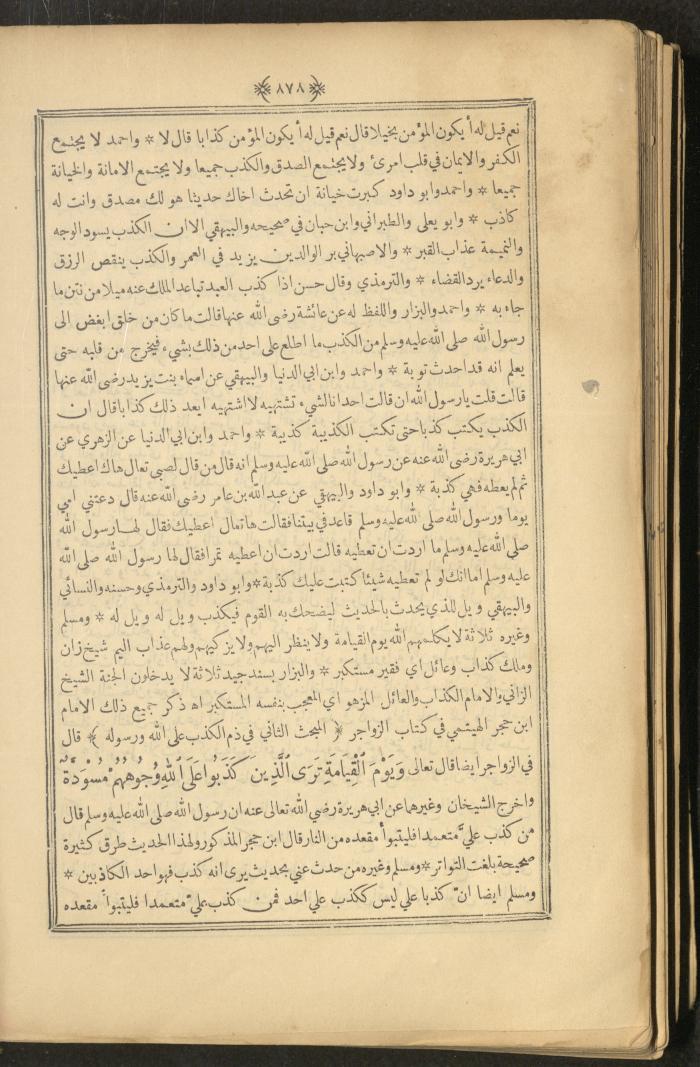 ٨٧٨
نعم قيل له أيكون المؤمن بخيلا قال نعم قيل له أيكون المؤمن كذابا قال لا * واحمد لا يجتمع
الكفر والايمان في قلب امرئ ولا يجتمع الصدق والكذب جميعا ولا يجتمع الامانة والخيانة
جميعا * واحمد وابو داود كبرت خيانة ان تحدث اخاك حديثا هو لك مصدق وانت له
كاذب * وابو يعلى والطبراني وابن حبان في صحيحه والبيهقي الا ان الكذب يسود الوجه
والنميمة عذاب القبر * والاصبهاني بر الوالدين يزيد في العمر والكذب ينقص الرزق
والدعاء يرد القضاء * والترمذي وقال حسن اذا كذب العبد تباعد الملك عنه ميلا من نتن ما
جاء به * واحمد والبزار واللفظ له عن عائشة رضى الله عنها قالت ما كان من خلق ابغض الى
رسول الله صلى الله عليه وسلم من الكذب ما اطلع على احد من ذلك بشيء فيخرج من قلبه حتى
يعلم انه قد احدث توبة * واحمد وابن ابي الدنيا والبيهقي عن اسماء بنت يزيد رضى الله عنها
قالت قلت يا رسول الله ان قالت احدانا لشيء تشتهيه لا اشتهيه ايعد ذلك كذابا قال ان
الكذب يكتب كذبا حتى تكتب الكذيبة كذيبة * واحمد وابن ابي الدنيا عن الزهري عن
ابي هريرة رضى الله عنه عن رسول الله صلى الله عليه وسلم انه قال من قال لصبي تعال هاك اعطيك
ثم لم يعطه فهي كذبة * وابو داود والبيهقي عن عبد الله بن عامر رضى الله عنه قال دعتني امي
يوما ورسول الله صلى الله عليه وسلم قاعد في بيتنا فقالت ها تعال اعطيك فقال لها رسول الله
صلى الله عليه وسلم ما اردت ان تعطيه قالت اردت ان اعطيه تمرا فقال لها رسول الله صلى الله
عليه وسلم اما انك لو لم تعطيه شيئا كتبت عليك كذبة * وابو داود والترمذي وحسنه والنسائي
والبيهقي ويل للذي يحدث بالحديث ليضحك به القوم فيكذب ويل له ويل له * ومسلم
وغيره ثلاثة لا يكلمهم الله يوم القيامة ولا ينظر اليهم ولا يزكيهم ولهم عذاب اليم شيخ زان
وملك كذاب وعائل اي فقير مستكبر * والبزار بسند جيد ثلاثة لا يدخلون الجنة الشيخ
الزاني والامام الكذاب والعائل المزهو اي المعجب بنفسه المستكبر اه ذكر جميع ذلك الامام
ابن حجر الهيتمي في كتاب الزواجر ﴿ المبحث الثاني في ذم الكذب على الله ورسوله ﴾ قال
في الزواجر ايضا قال تعالى وَيَوْمَ الْقِيَامَةِ تَرَى الَّذِينَ كَذَبُوا عَلَى اللهِ وُجُوهُهُمْ مُسْوَدَّةٌ
واخرج الشيخان وغيرهما عن ابي هريرة رضى الله تعالى عنه ان رسول الله صلى الله عليه وسلم قال
من كذب عليّ متعمدا فليتبوأ مقعده من النار قال ابن حجر المذكور ولهذا الحديث طرق كثيرة
صحيحة بلغت التواتر * ومسلم وغيره من حدث عني بحديث يرى انه كذب فهو احد الكاذبين *
ومسلم ايضا انّ كذبا علي ليس ككذب على احد فمن كذب علي متعمدا فليتبوأ مقعده